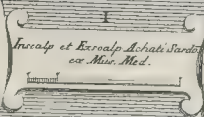 I
Inscalp et Exscalp Achati Sardo
ex Mus. Med.